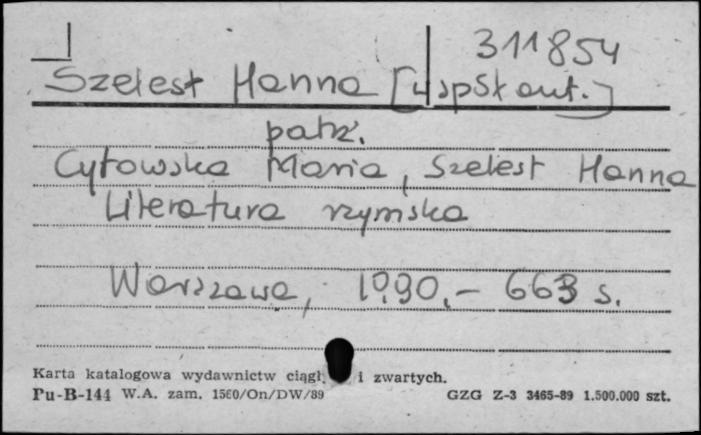 311854
Szelest Hanna [współaut.]
patrz.
Cytowska Maria, Szelest Hanna
Literatura rzymska
Warszawa, 1990.- 663 s.
Karta katalogowa wydawnictw ciągł. i zwartych.
Pu-B-144 W.A. zam. 1560/On/DW/89 GZG Z-3 3465-89 1.500.000 szt.